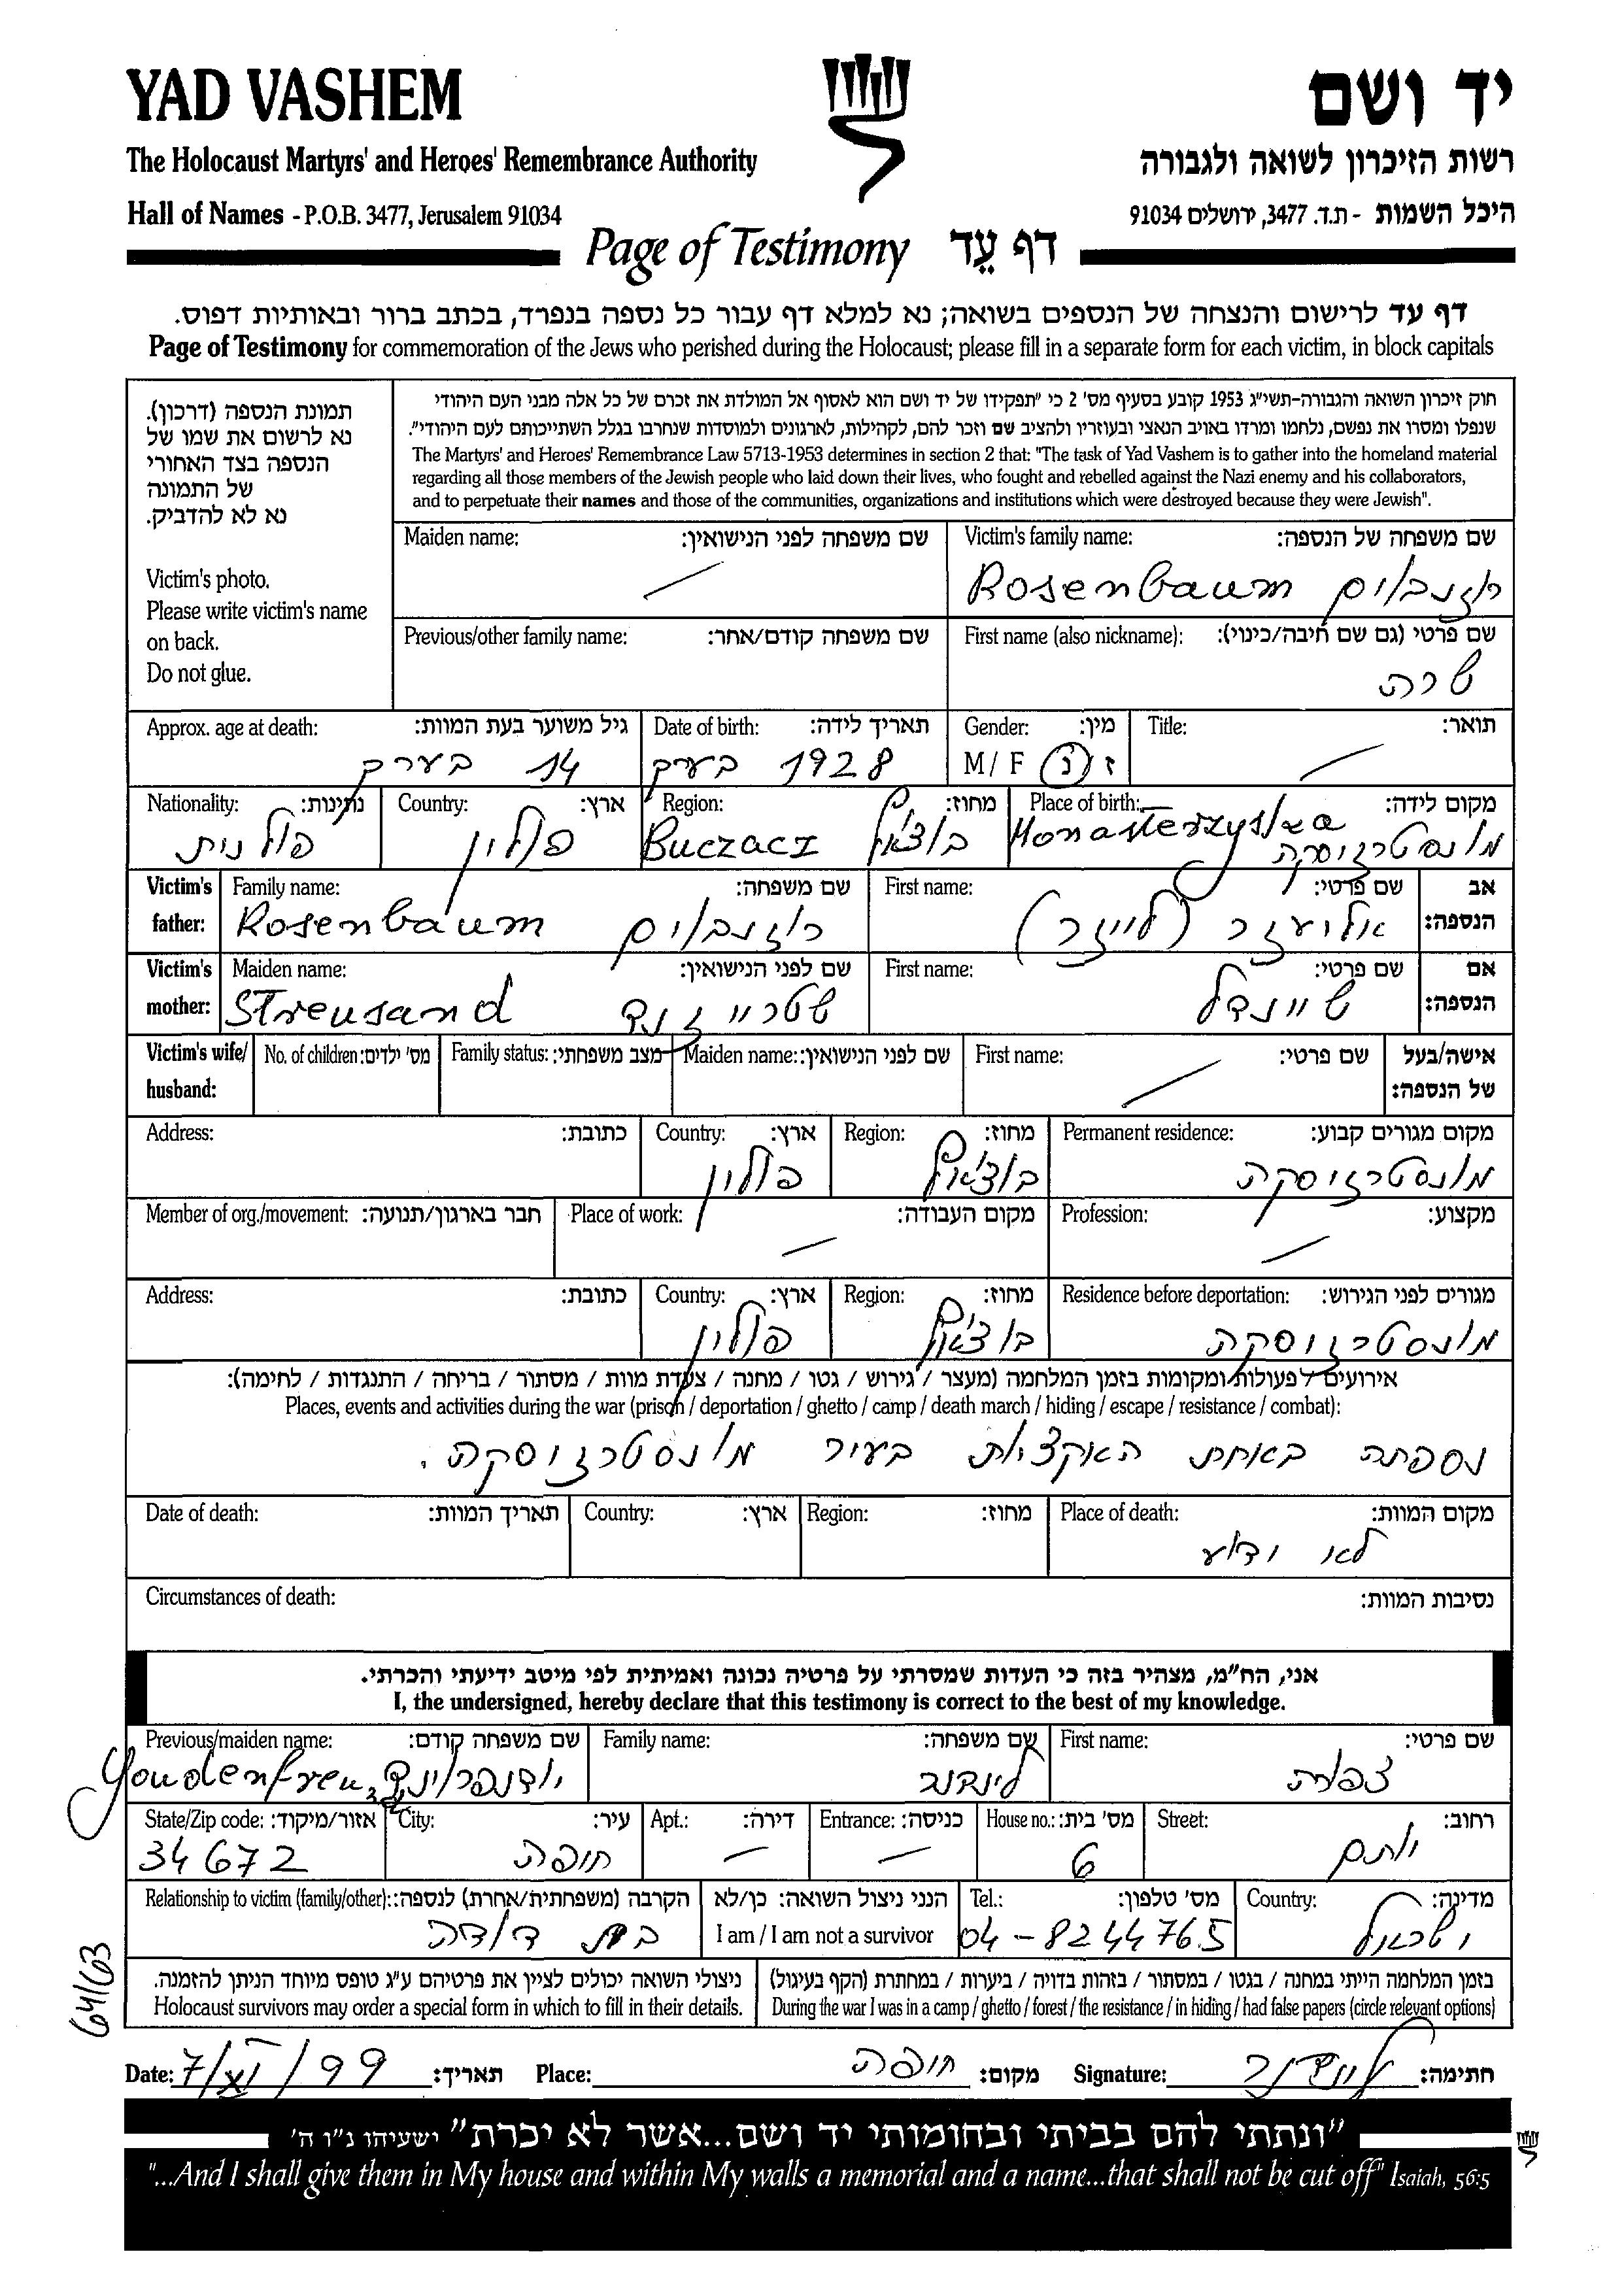 YAD VASHEM
יד ושם
The Holocaust Martyrs' and Heroes' Remembrance Authority
רשות הזיכרון לשואה ולגבורה
Hall of Names - P.O.B. 3477, Jerusalem 91034
היכל השמות - ת.ד. 3477, ירושלים 91034
Page of Testimony דף עֵד
דף עד לרישום והנצחה של הנספים בשואה; נא למלא דף עבור כל נספה בנפרד, בכתב ברור ובאותיות דפוס.
Page of Testimony for commemoration of the Jews who perished during the Holocaust; please fill in a separate form for each victim, in block capitals
תמונת הנספה (דרכון).
נא לרשום את שמו של
הנספה בצד האחורי
של התמונה
נא לא להדביק.
Victim's photo.
Please write victim's name
on back.
Do not glue.
חוק זיכרון השואה והגבורה-תשי"ג 1953 קובע בסעיף מס' 2 כי "תפקידו של יד ושם הוא לאסוף אל המולדת את זכרם של כל אלה מבני העם היהודי
שנפלו ומסרו את נפשם, נלחמו ומרדו באויב הנאצי ובעוזריו ולהציב שם וזכר להם, לקהילות, לארגונים ולמוסדות שנחרבו בגלל השתייכותם לעם היהודי".
The Martyrs' and Heroes' Remembrance Law 5713-1953 determines in section 2 that: "The task of Yad Vashem is to gather into the homeland material
regarding all those members of the Jewish people who laid down their lives, who fought and rebelled against the Nazi enemy and his collaborators,
and to perpetuate their names and those of the communities, organizations and institutions which were destroyed because they were Jewish".
Victim's family name: שם משפחה של הנספה:
Rosenbaum רוזנבוים
Maiden name: שם משפחה לפני הנישואין:
First name (also nickname): שם פרטי (גם שם חיבה/כינוי):
שרה
Previous/other family name: שם משפחה קודם/אחר:
Title: תואר:
Gender: מין:
M / F ז / נ
Date of birth: תאריך לידה:
1928 בערך
Approx. age at death: גיל משוער בעת המוות:
14 בערך
Place of birth: מקום לידה:
Monasterzyska
מונסטרז'יסקה
Region: מחוז:
Buczacz בוצ'אץ'
Country: ארץ:
פולין
Nationality: נתינות:
פולנית
Victim's father: אב הנספה:
First name: שם פרטי:
אליעזר (לייזר)
Family name: שם משפחה:
Rosenbaum רוזנבוים
Victim's mother: אם הנספה:
First name: שם פרטי:
שיינדל
Maiden name: שם לפני הנישואין:
Streusand שטרייזנד
Victim's wife/ husband: אישה/בעל של הנספה:
First name: שם פרטי:
Maiden name: שם לפני הנישואין:
Family status: מצב משפחתי:
No. of children: מס' ילדים:
Permanent residence: מקום מגורים קבוע:
מונסטרזיסקה
Region: מחוז:
בוצ'אץ'
Country: ארץ:
פולין
Address: כתובת:
Profession: מקצוע:
Place of work: מקום העבודה:
Member of org./movement: חבר בארגון/תנועה:
Residence before deportation: מגורים לפני הגירוש:
מונסטרזיסקה
Region: מחוז:
בוצ'אץ'
Country: ארץ:
פולין
Address: כתובת:
אירועים / פעולות ומקומות בזמן המלחמה (מעצר / גירוש / גטו / מחנה / צעדת מוות / מסתור / בריחה / התנגדות / לחימה):
Places, events and activities during the war (prison / deportation / ghetto / camp / death march / hiding / escape / resistance / combat):
נספתה באחת האקציות בעיר מונסטרזיסקה.
Place of death: מקום המוות:
לא ידוע
Region: מחוז:
Country: ארץ:
Date of death: תאריך המוות:
Circumstances of death: נסיבות המוות:
אני, הח"מ, מצהיר בזה כי העדות שמסרתי על פרטיה נכונה ואמיתית לפי מיטב ידיעתי והכרתי.
I, the undersigned, hereby declare that this testimony is correct to the best of my knowledge.
First name: שם פרטי:
צפורה
Family name: שם משפחה:
לינדנר
Previous/maiden name: שם משפחה קודם:
יודנפרוינד
Street: רחוב:
יותם
House no.: מס' בית:
6
Entrance: כניסה:
Apt.: דירה:
City: עיר:
חיפה
State/Zip code: אזור/מיקוד:
34672
Country: מדינה:
ישראל
Tel.: מס' טלפון:
04-8244765
הנני ניצול השואה: כן/לא
I am / I am not a survivor
Relationship to victim (family/other): הקרבה (משפחתית/אחרת) לנספה:
בת דודה
בזמן המלחמה הייתי במחנה / בגטו / במסתור / בזהות בדויה / ביערות / במחתרת (הקף בעיגול)
During the war I was in a camp / ghetto / forest / the resistance / in hiding / had false papers (circle relevant options)
ניצולי השואה יכולים לציין את פרטיהם ע"ג טופס מיוחד הניתן להזמנה.
Holocaust survivors may order a special form in which to fill in their details.
64/63
Date: 7/XI/99 תאריך: Place: חיפה מקום: Signature: לינדנר חתימה:
"ונתתי להם בביתי ובחומותי יד ושם...אשר לא יכרת" ישעיהו נ"ו ה'
"...And I shall give them in My house and within My walls a memorial and a name...that shall not be cut off" Isaiah, 56:5